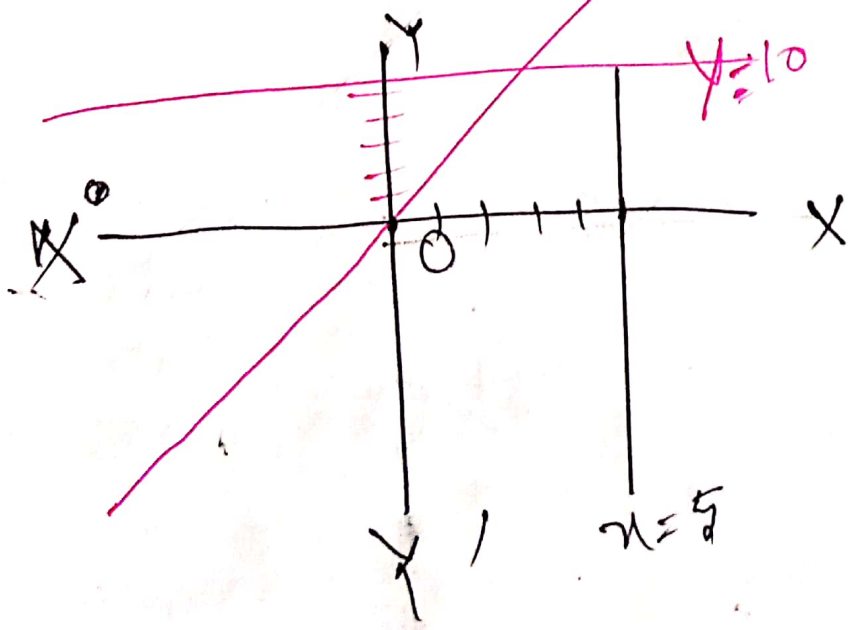 Y
y=10
X'
X
O
Y'
x=5